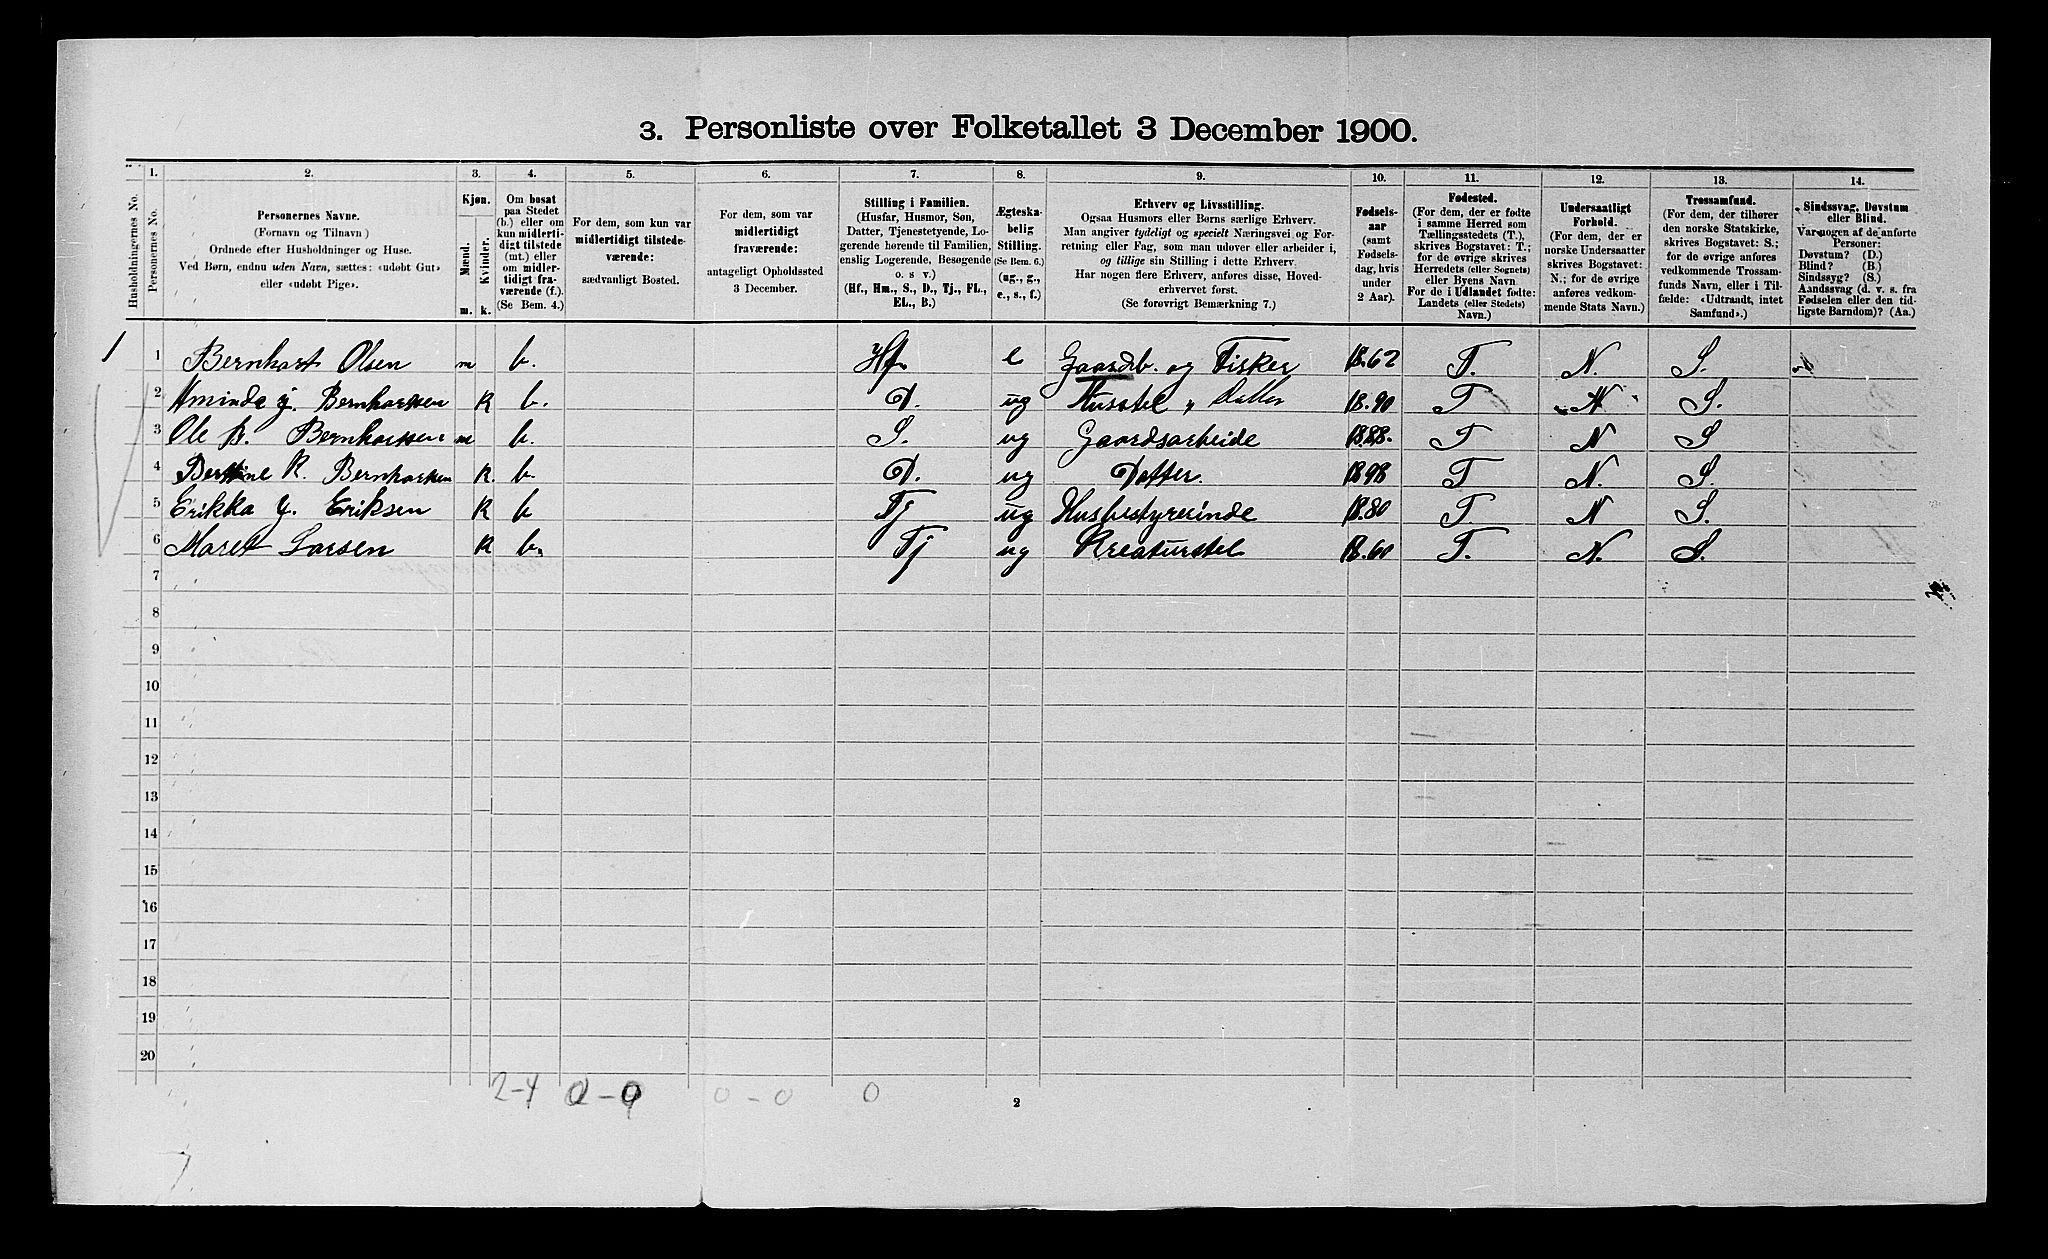 3. Personliste over Folketallet 3 December 1900.
1. 2. 3. 4. 5. 6. 7. 8. 9. 10. 11. 12. 13. 14.
Husholdningernes No.
Personernes No.
Personernes Navne.
(Fornavn og Tilnavn)
Ordnede efter Husholdninger og Huse.
Ved Børn, endnu uden Navn, sættes: «udøbt Gut»
eller «udøbt Pige».
Kjøn.
Mænd.
Kvinder.
m. k.
Om bosat
paa Stedet
(b.) eller om
kun midlerti-
digt tilstede
(mt.) eller
om midler-
tidigt fra-
værende (f.).
(Se Bem. 4.)
For dem, som kun var
midlertidigt tilstede-
værende:
sædvanligt Bosted.
For dem, som var
midlertidigt
fraværende:
antageligt Opholdssted
3 December.
Stilling i Familien.
(Husfar, Husmor, Søn,
Datter, Tjenestetyende, Lo-
gerende hørende til Familien,
enslig Logerende, Besøgende
o. s v.)
(Hf., Hm., S., D., Tj., FL.,
EL., B.)
Ægteska-
belig
Stilling.
(Se Bem. 6.)
(ug., g.,
e., s., f.)
Erhverv og Livsstilling.
Ogsaa Husmors eller Børns særlige Erhverv.
Man angiver tydeligt og specielt Næringsvei og For-
retning eller Fag, som man udøver eller arbeider i,
og tillige sin Stilling i dette Erhverv.
Har nogen flere Erhverv, anføres disse, Hoved-
erhvervet først.
(Se forøvrigt Bemærkning 7.)
Fødsels-
aar
(samt
Fødsels-
dag, hvis
under
2 Aar).
Fødested.
(For dem, der er fødte
i samme Herred som
Tællingsstedets (T.),
skrives Bogstavet: T.;
for de øvrige skrives
Herredets (eller Sognets)
eller Byens Navn
For de i Udlandet fødte:
Landets (eller Stedets)
Navn.)
Undersaatligt
Forhold.
(For dem, der er
norske Undersaatter
skrives Bogstavet:
N.; for de øvrige
anføres vedkom-
mende Stats Navn.)
Trossamfund.
(For dem, der tilhører
den norske Statskirke,
skrives Bogstavet: S.;
for de øvrige anføres
vedkommende Trossam-
funds Navn, eller i Til-
fælde: «Udtraadt, intet
Samfund».)
Sindssvag, Døvstum
eller Blind.
Var nogen af de anførte
Personer:
Døvstum? (D.)
Blind? (B.)
Sindssyg? (S.)
Aandssvag (d. v. s. fra
Fødselen eller den tid-
ligste Barndom)? (Aa.)
1 1 Bernhart Olsen m b. Hf. e Gaardb. og Fisker 1862 T. N. S.
2 Aminda J. Bernharssen K b. D. ug Husstel " Datter 18.90 T N S.
3 Ole B. Bernharssen m b. S. ug Gaardsarbeide 1888. T N S
4 Bertine R. Bernharssen K. b. D. ug Datter. 1898 T N. S.
5 Erikka J. Eriksen K b Tj ug Husbestyrerinde 18.80 T N S.
6 Maret Larsen K b. Tj ug Kreaturstel 18.60 T. N. S.
7
8
9
10
11
12
13
14
15
16
17
18
19
20
2-4 0-0 0-0 0
2